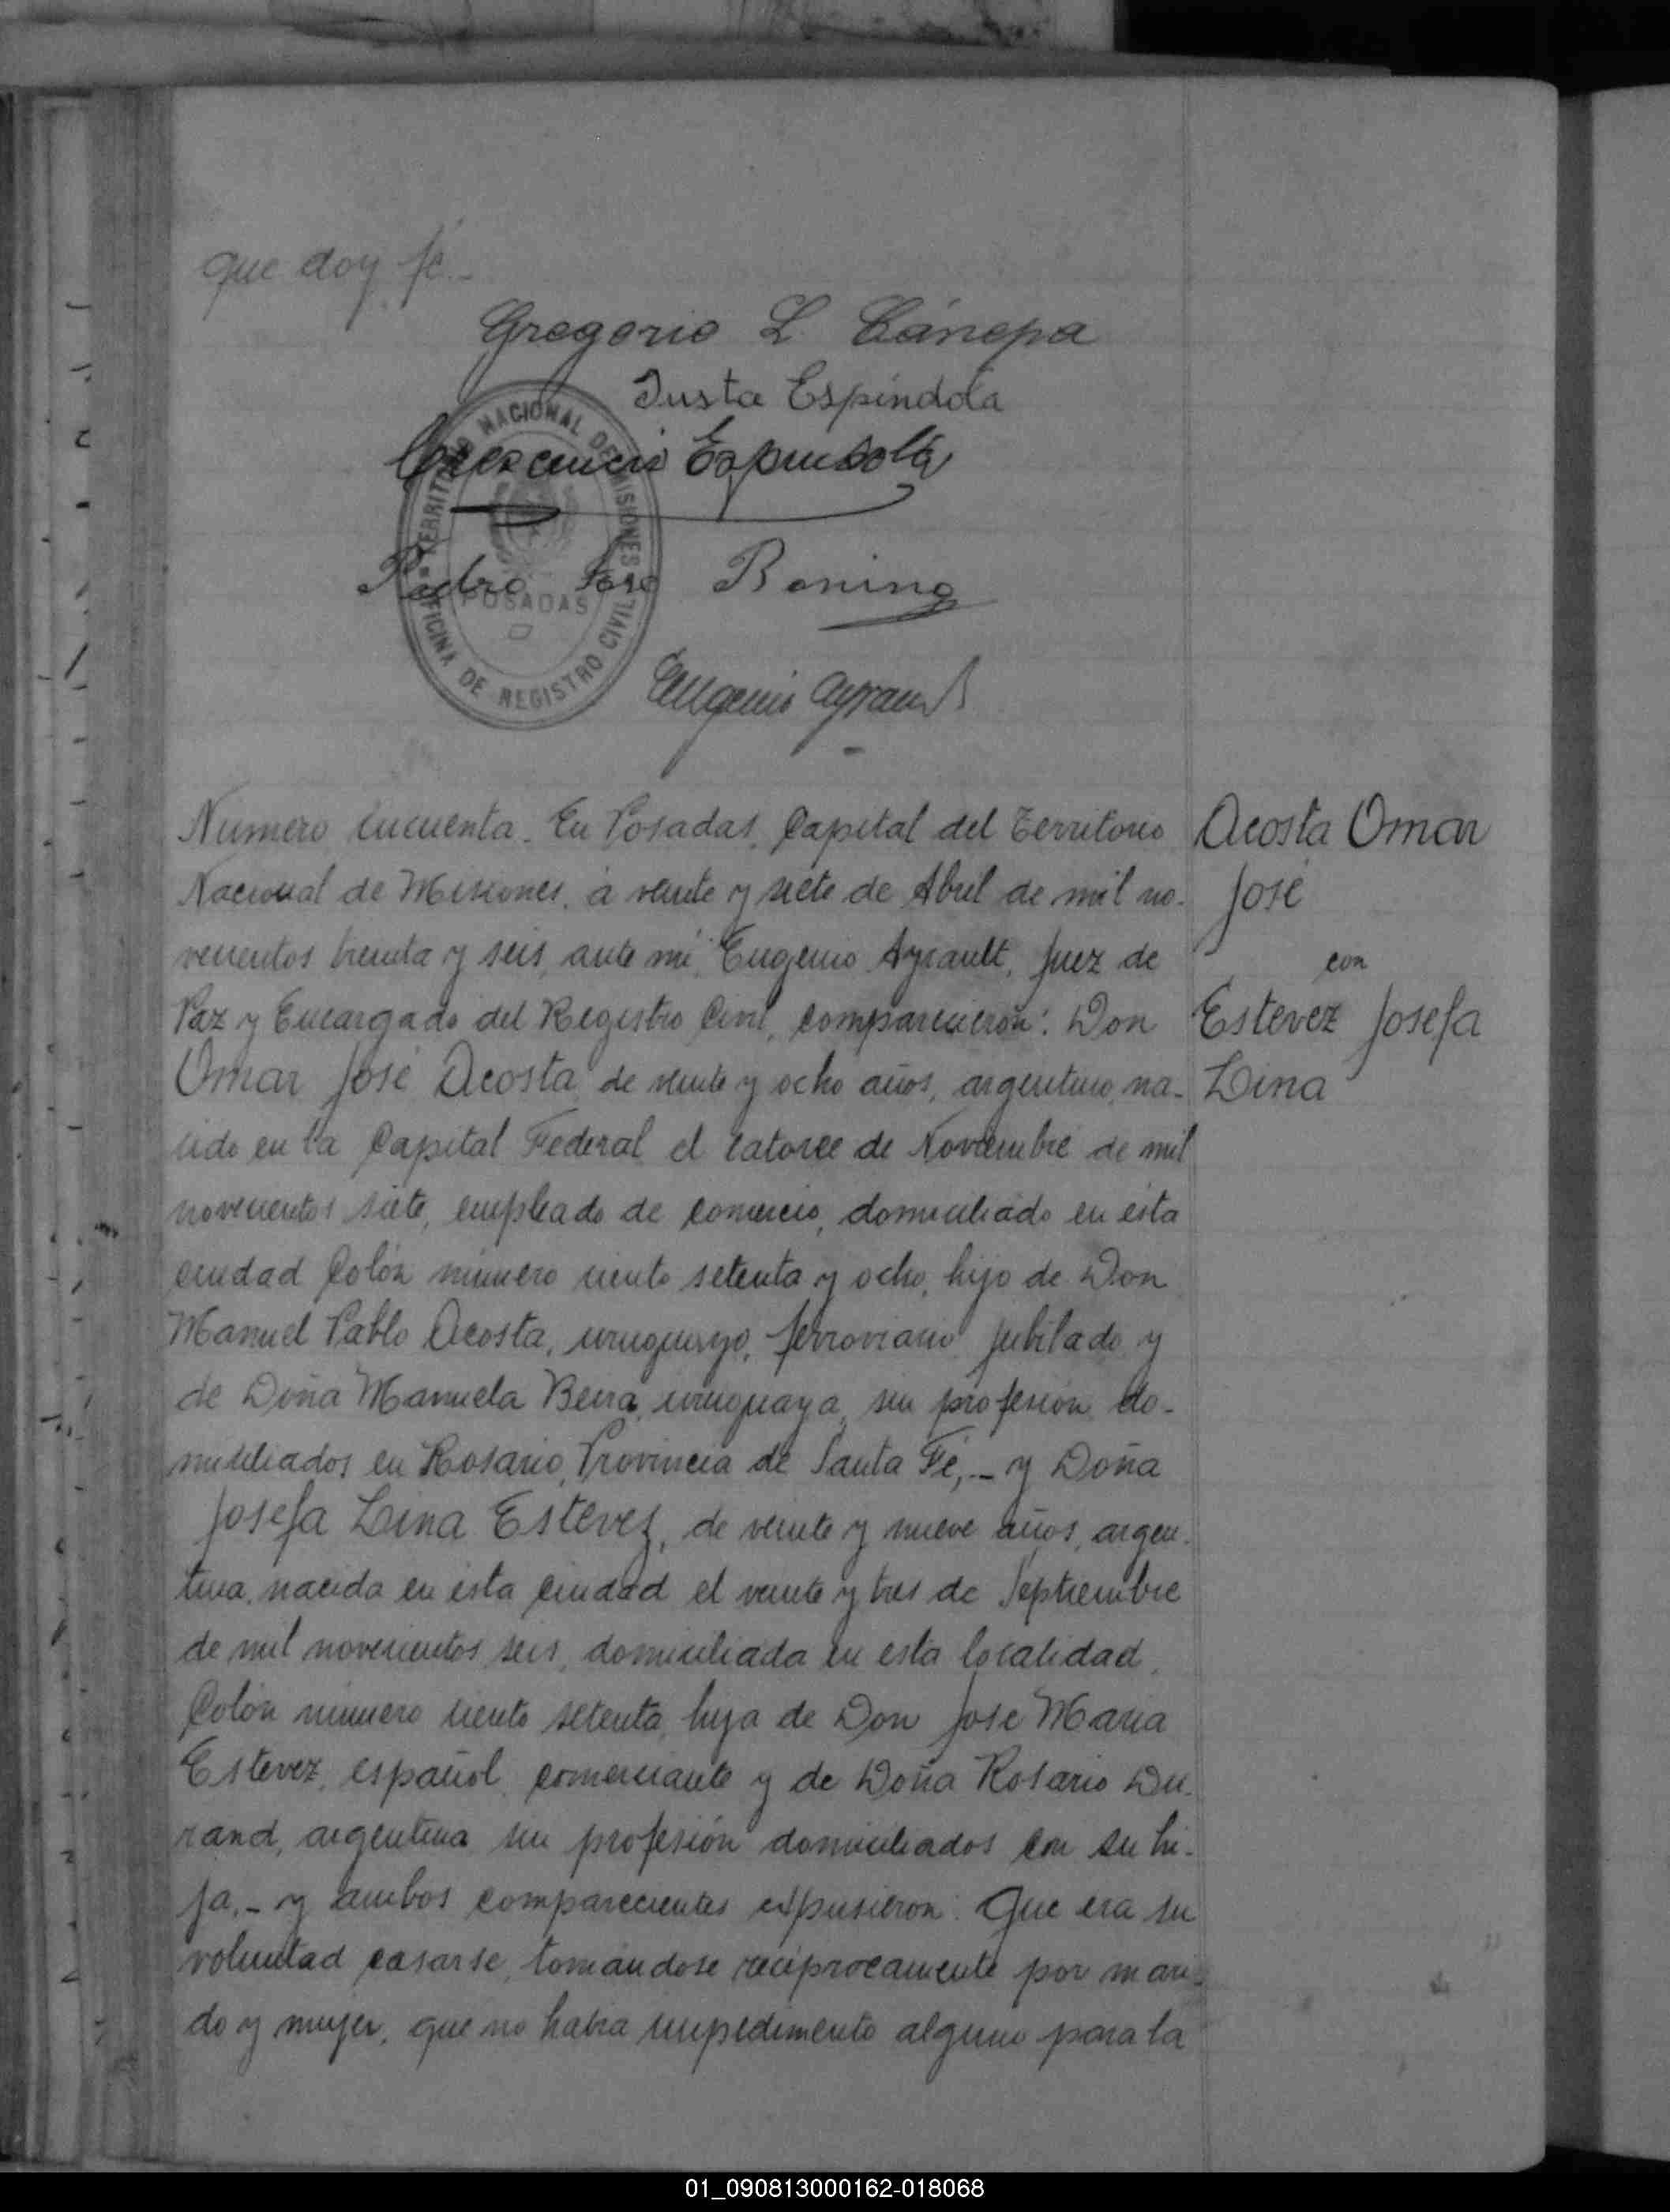 que doy fé._
Gregorio L. Cánepa
Justa Espíndola
Espindola
Pedro José Bonino
Eugenio Ayrault
TERRITORIO NACIONAL DE MISIONES
POSADAS
OFICINA DE REGISTRO CIVIL
Acosta Omar
José
con
Estevez Josefa
Lina
Numero cincuenta. En Posadas, Capital del Territorio
Nacional de Misiones, á veinte y siete de Abril de mil no-
vecientos treinta y seis, ante mi, Eugenio Ayrault, Juez de
Paz y Encargado del Registro Civil, comparecieron: Don
Omar José Acosta, de veinte y ocho años, argentino, na-
cido en la Capital Federal el catorce de Noviembre de mil
novecientos siete, empleado de comercio, domiciliado en esta
ciudad Colón número ciento setenta y ocho, hijo de Don
Manuel Pablo Acosta, uruguayo, ferroviario jubilado y
de Doña Manuela Beira, uruguaya, sin profesión, do-
miciliados en Rosario, Provincia de Santa Fé,_ y Doña
Josefa Lina Estevez, de veinte y nueve años, argen-
tina, nacida en esta ciudad el veinte y tres de Septiembre
de mil novecientos seis, domiciliada en esta localidad,
Colón número ciento setenta, hija de Don José Maria
Estevez, español, comerciante y de Doña Rosario Du-
rand, argentina sin profesión domiciliados con su hi-
ja,_ y ambos comparecientes expusieron: Que era su
voluntad casarse, tomándose recíprocamente por mari-
do y mujer, que no habia impedimento alguno para la
01_090813000162-018068